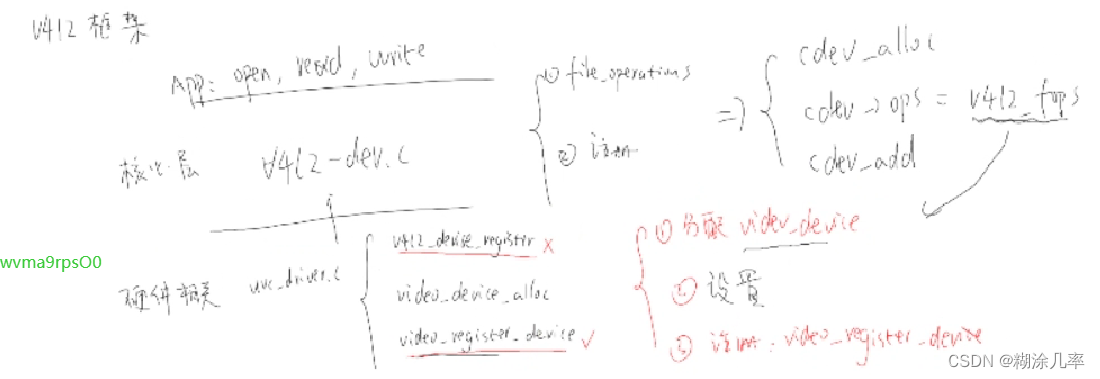 V4l2 框架
App: open, read, write
核心层 v4l2-dev.c
① file_operations
② 注册
=> cdev_alloc
cdev->ops = v4l2_fops
cdev_add
wvma9rpsO0
硬件相关 uvc_driver.c
v4l2_device_register x
video_device_alloc
video_register_device ✓
① 分配 video_device
② 设置
③ 注册: video_register_device
CSDN @糊涂几率